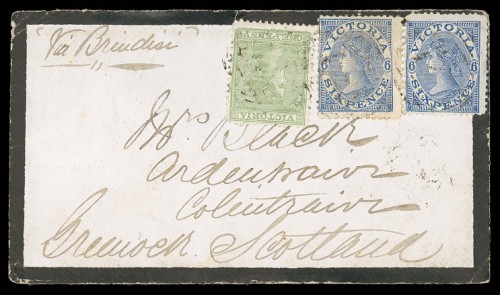 "Via Brindisi"
VICTORIA
VICTORIA
6 6
SIX PENCE
VICTORIA
6 6
SIX PENCE
Mrs Black
Ardentraive
Colintraive
Greenock Scotland